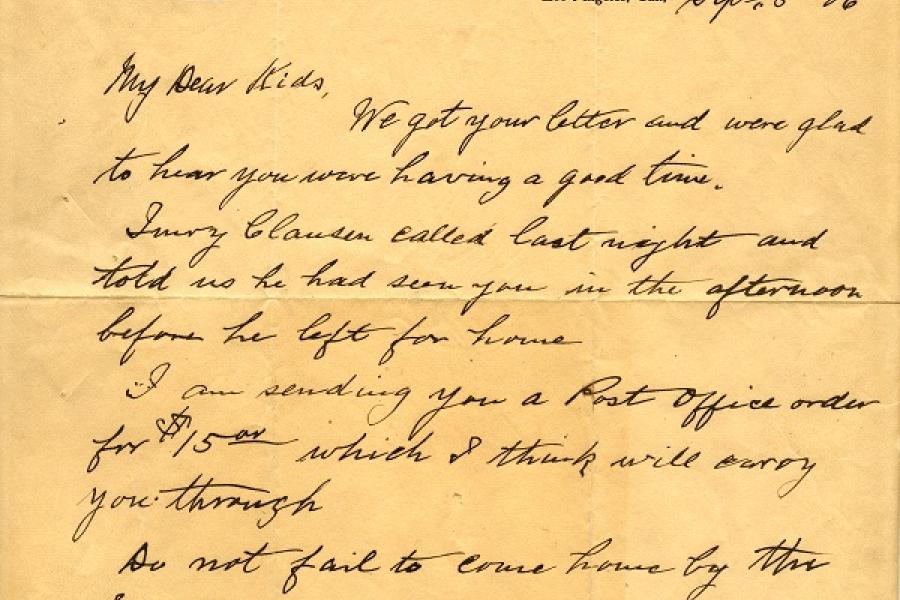 Los Angeles, Cal., Sept. 8 06
My Dear Kids,
We got your letter and were glad
to hear you were having a good time.
Clausen called last night and
told us he had seen you in the afternoon
before he left for home
I am sending you a Post Office order
for $15 00 which I think will carry
you through
Do not fail to come home by the